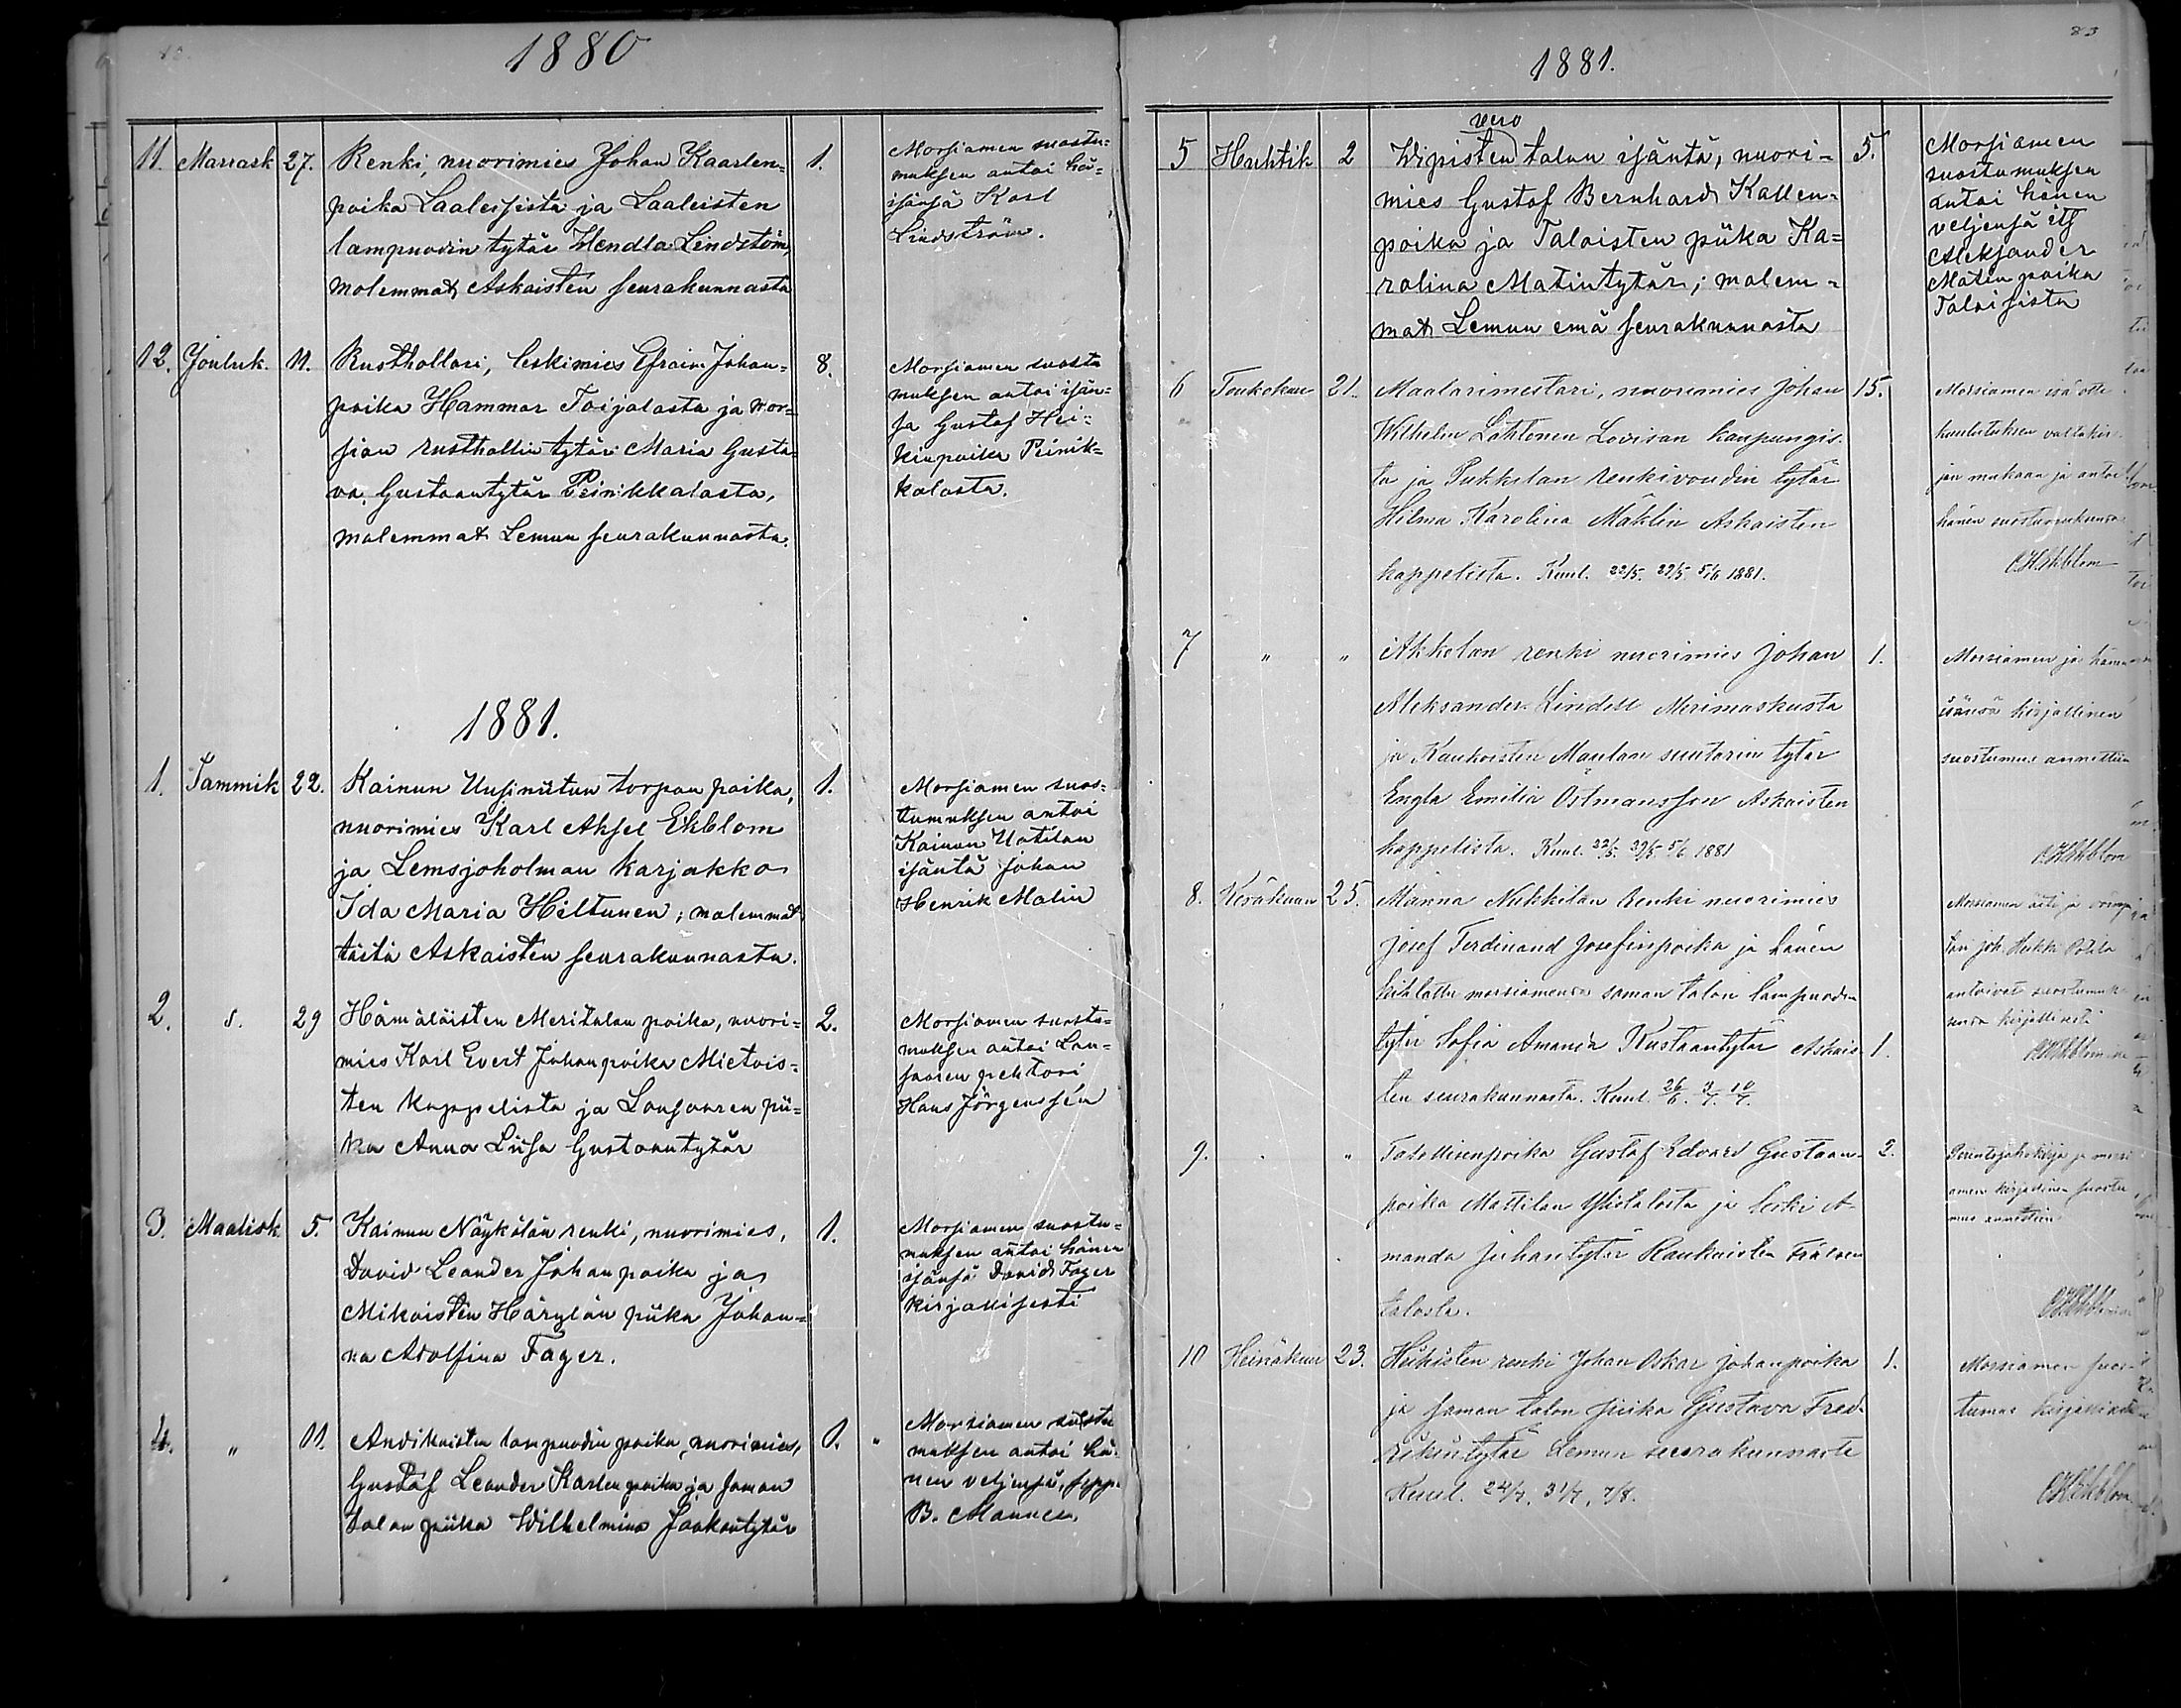 1880
11. Marrask 27. Renki, nuorimies Johan Kaarlen= 1.
poika Laalissista ja Laaleisten
lampuodin tytär Hendla Lindstöm,
molemmat Askaisten seurakunnasta
Morsiamen suostu=
muksen antoi hä=
isänsä Karl
Lindström.
12. Jouluk. 11. Rusthollari, leskimies Efraim Johan= 8.
poika Hammar Toijalasta ja mor=
sian rusthollin tytär Maria Gusta=
va Gustaantytär Peinikkalasta,
molemmat Lemun seurakunnasta.
Morsiamen suostu
muksen antoi isän=
sä Gustaf Hei=
kinpoika Peinik=
kalasta.
1881.
1. Tammik 22. Kainun Uusiniitun torpan poika, 1.
nuorimies Karl Aksel Ekblom
ja Lemsjoholman karjakko
Ida Maria Hiltunen; molemmat
tästä Askaisten seurakunnasta.
Morsiamen suos=
tumuksen antoi
Kainun Uotilan
isäntä Johan
Henrik Malin
2. s. 29 Hämäläisten Meritalon poika, nuori= 2.
mies Karl Evert Johanpoika Mietois=
ten kappelista ja Lousaaren pii=
ka Anna Liisa Gustaantytär
Morsiamen suostu=
muksen antoi Lou=
saaren pehtori
Hans Jörgenssén
3. Maalisk. 5. Kainun Näykälän renki, nuorimies, 1.
David Leander Johanpoika ja
Mikoisten Härylän piika Johan=
na Adolfina Fager.
Morsiamen suostu=
muksen antoi hänen
isänsä David Fager
kirjallisesti
4. " 11. Andikaisten lampuodin poika, nuorimies, 1. "
Gustaf Leander Karlenpoika ja saman
talon piika Wilhelmina Jaakontytär
Morsiamen suostu
muksen antoi hä=
nen veljensä, sepp.
B. Mannen
83
1881.
5 Huhtik 2 Wipisten vero talon isäntä, nuori= 5.
mies Gustaf Bernhard Kallen=
poika ja Taloisten piika Ka=
rolina Matintytär; molem=
mat Lemun emä seurakunnasta
Morsiamen
suostumuksen
antoi hänen
veljensä itg
Aleksander
Matin poika
Taloisista
6 Toukokuu 21. Maalarimestari, nuorimies Johan 15.
Wilhelm Lahtonen Lovisan kaupungis
ta ja Pukkilan renkivoudin tytär
Hilma Karolina Mäklin Askaisten
kappelista. Kuul. 22/5. 29/5 5/6 1881.
Morsiamen isä otti
kuulutuksen valtakir
jan mukaan ja antoi
hänen suostumuksensa
CHEkblom
7 " " Akkolan renki nuorimies Johan 1.
Aleksander Lindell Merimaskusta
ja Kankoisten Maulan suutarin tytär
Engla Emilia Östmansson Askaisten
kappelista. Kuul. 22/5. 29/5 5/6 1881
Morsiamen ja hänen
isänsä kirjallinen
suostumus annettiin
CHEkblom
8. Kesäkuun 25. Männa Nukkilan Renki nuorimies
Josef Ferdinand Josefinpoika ja hänen
kihlattu morsiamensa saman talon lampuodin
tytär Sofia Amanda Kustaantytär Askais 1.
ten seurakunnasta. Kuul. 26/6. 3/7. 10/7.
Morsiamen äiti ja
Joh. Heikki
antoivat suostumuk
sensa kirjallisesti
CHEkblom
9. " Gustaf Edvard Gustaan 2.
poika Mattilan Ylistalosta ja leski A
manda Juhantytär Kankaisten
talosta.
ja morsi
amen kirjallinen suostu
mus annettiin
CHEkblom
10 Heinäkuu 23. Heikisten renki Johan Oskar Johanpoika 1.
ja saman talon piika Gustava Fred
rikintytär Lemun seurakunnasta
Kuul. 24/7. 31/7, 7/8.
Morsiamen suos
tumus kirjallinen
CHEkblom